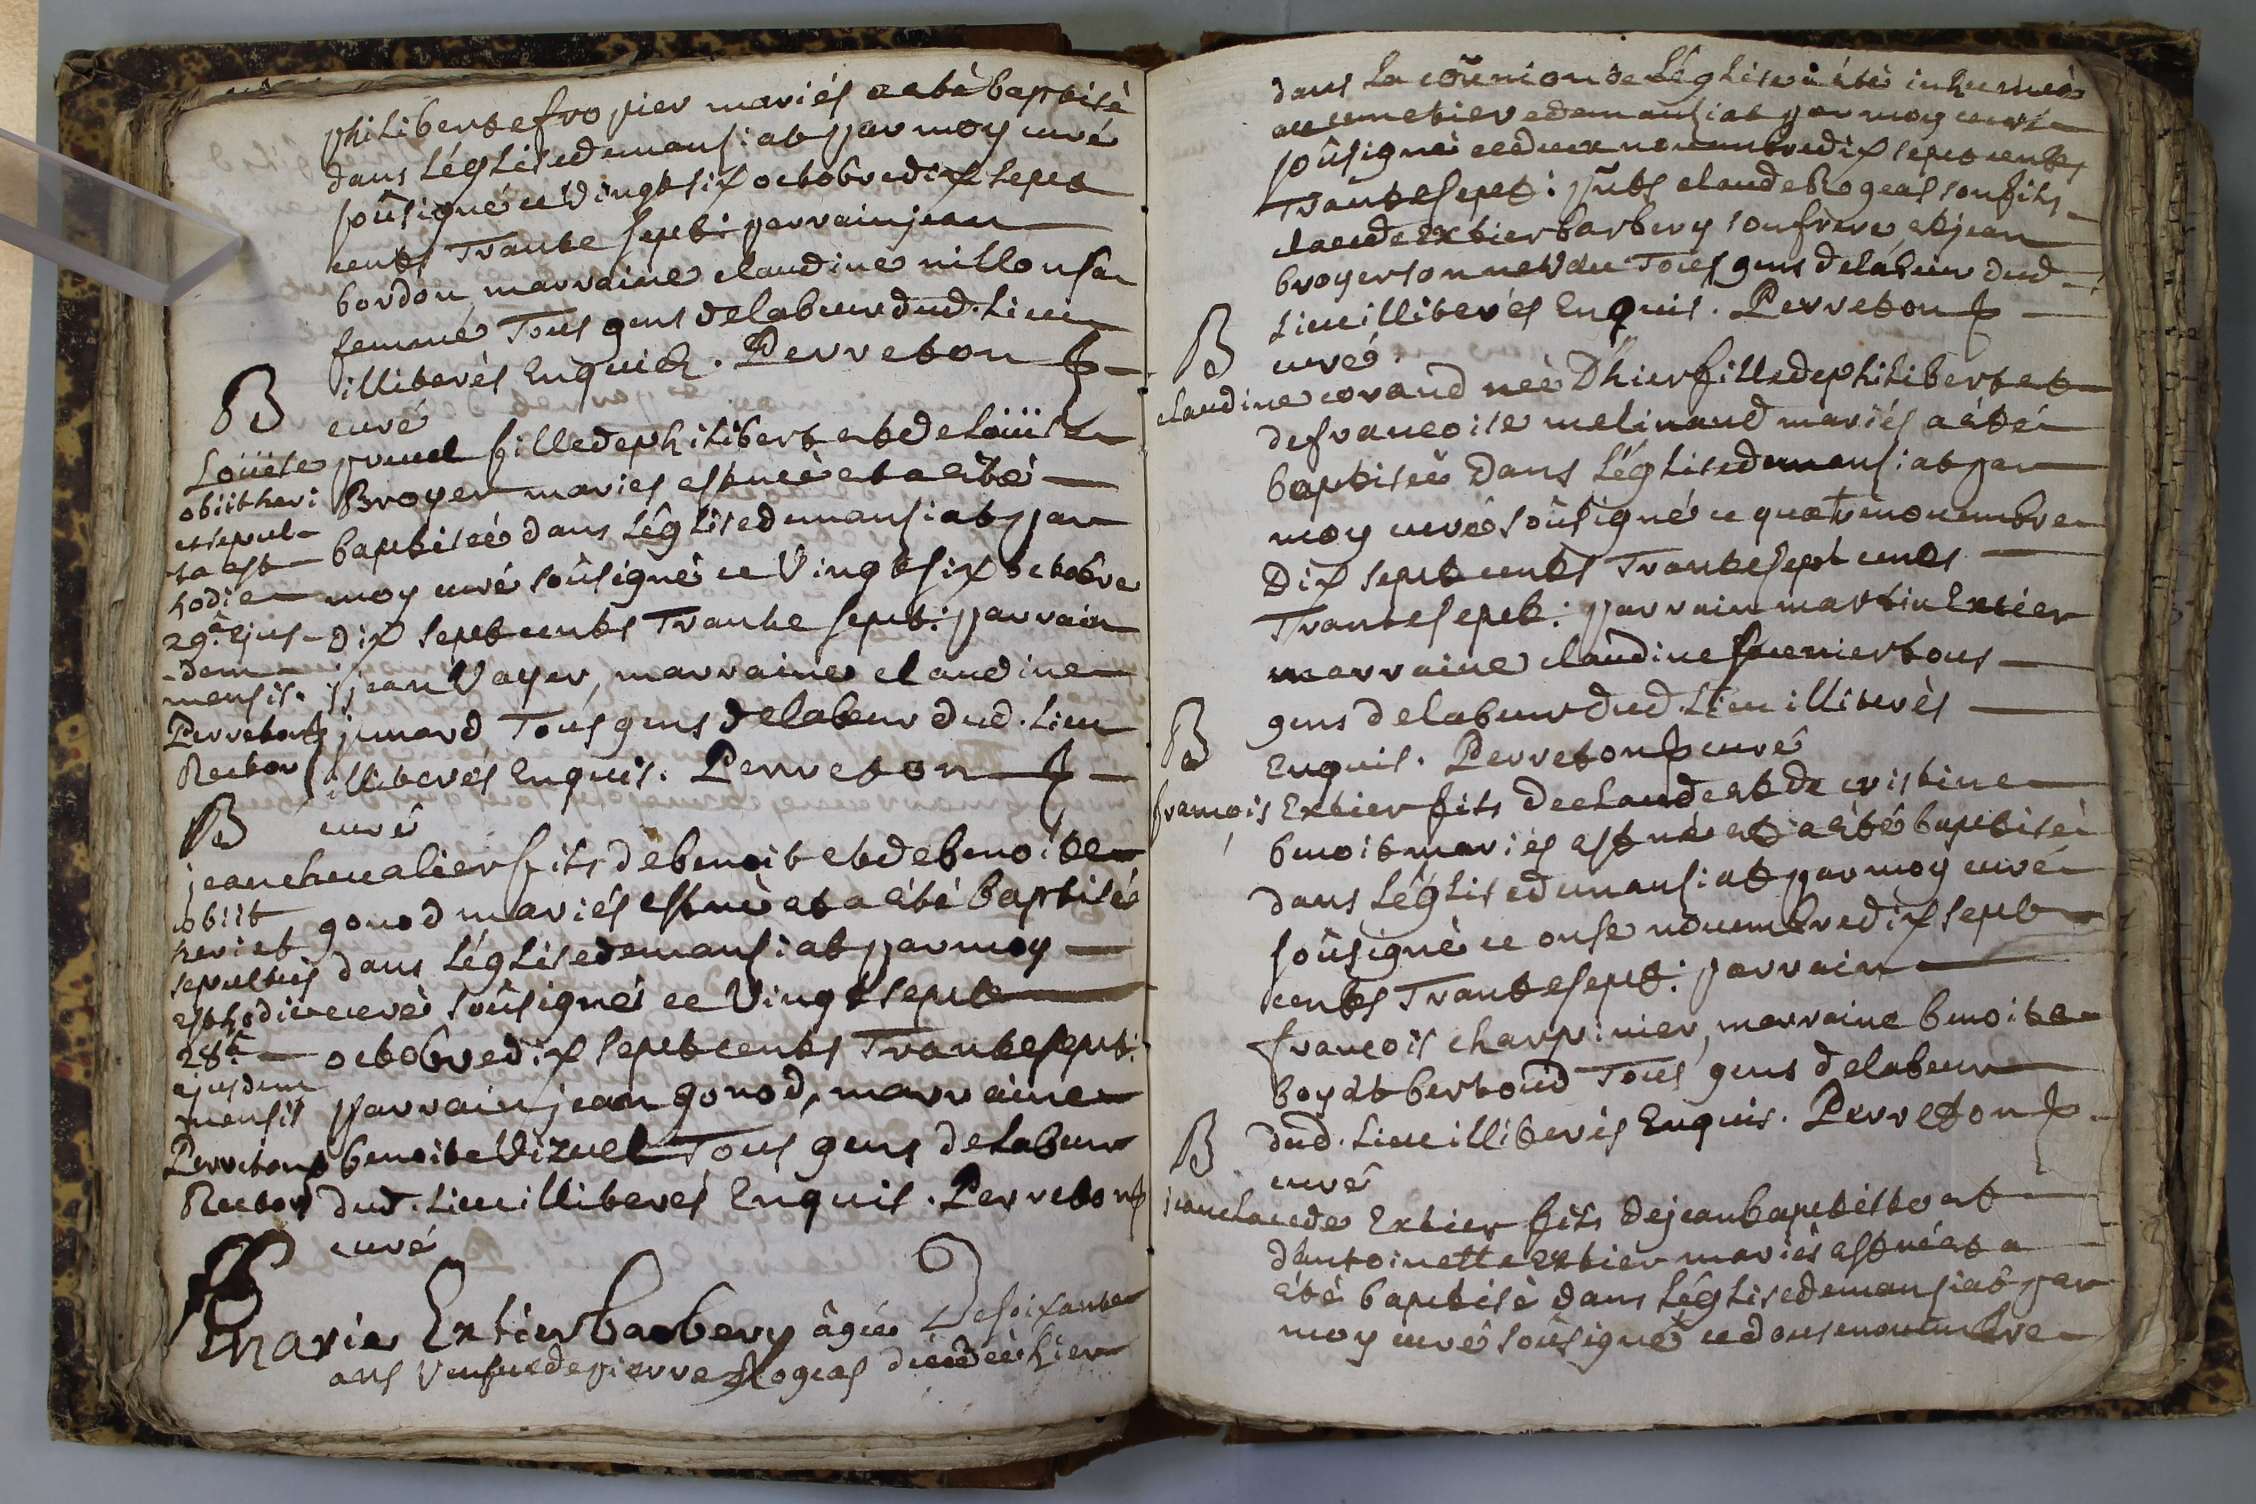 philiberte fropier mariés a eté baptisé
dans l'église de mansiat par moy curé
soûsigné ce vingt six octobre dix sept
cents Trante sept: parrain jean
bordon marraine claudine nillon sa
femme Tous gens de labeur dud. lieu
illiterés Enquis. Perreton
curé
B
Loüise pruel fille de philibert et de Loüise
Broyer mariés est neé et a eté
baptiseé dans l'église de mansiat par
moy curé soûsigné ce Vingt six octobre
Dix sept cents Trante sept: parrain
jean Voyer, marraine claudine
junard Tous gens de labeur dud. lieu
illiterés Enquis. Perreton
curé
obiit heri
et sepul-
ta est
hodie
29ª Ejus-
-dem
mensis.
Perreton
Rector
B
jean chevalier fils de benoit et de benoite
gonod mariés est né et a été baptisé
dans l'église de mansiat par moy
curé soûsigné ce Vingt sept
octobre dix sept cents Trante sept:
parrain jean gonod, marraine
benoite Vizuel Tous gens de labeur
dud. lieu illiterés Enquis. Perreton
curé
obiit
heri et
sepultus
est hodie
28ª
ejusdem
mensis
Perreton
Rector
Marie Extier barbery âgeé De soixante
ans Veufue de pierre Rogeas décédeé hier
dans la com̃union de l'église a été inhumeé
au cimetiere de mansiat par moy curé
soûsigné ce deux novembre dix sept cents
Trante sept: pñts claude Rogeas son fils
claude Extier barbery son frere et jean
broyer son neveu Tous gens de labeur dud
lieu illiterés Enquis. Perreton
curé
B
claudine corand neé D'hier fille de philibert et
de francoise melinand mariés a été
baptiseé Dans l'église de mansiat par
moy curé soûsigné ce quatre novembre
Dix sept cents Trante sept cents
Trante sept: parrain martin Extier
marraine claudine tous
gens de labeur dud. lieu illiterés
Enquis. Perreton curé
B
françois Extier fils de claude et de cristine
benoit mariés est né et a été baptisé
dans l'église de mansiat par moy curé
soûsigné ce onse novembre dix sept
cents Trante sept: parrain
françois charpinier, marraine benoite
boyat bertoud Tous gens de labeur
dud. lieu illiterés Enquis. Perreton
curé
B
jean claude Extier fils de jean baptiste et
d'antoinette Extier mariés est né et a
été baptisé dans l'église de mansiat par
moy curé soûsigné ce douse novembre